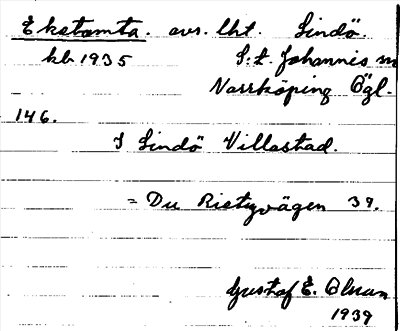 Ekstomta. avs. lht. Lindö.
kb 1935 S:t. Johannis m
Norrköping Ögl.
146.
I Lindö Villastad.
= Du 39.
Gustaf E.
1939